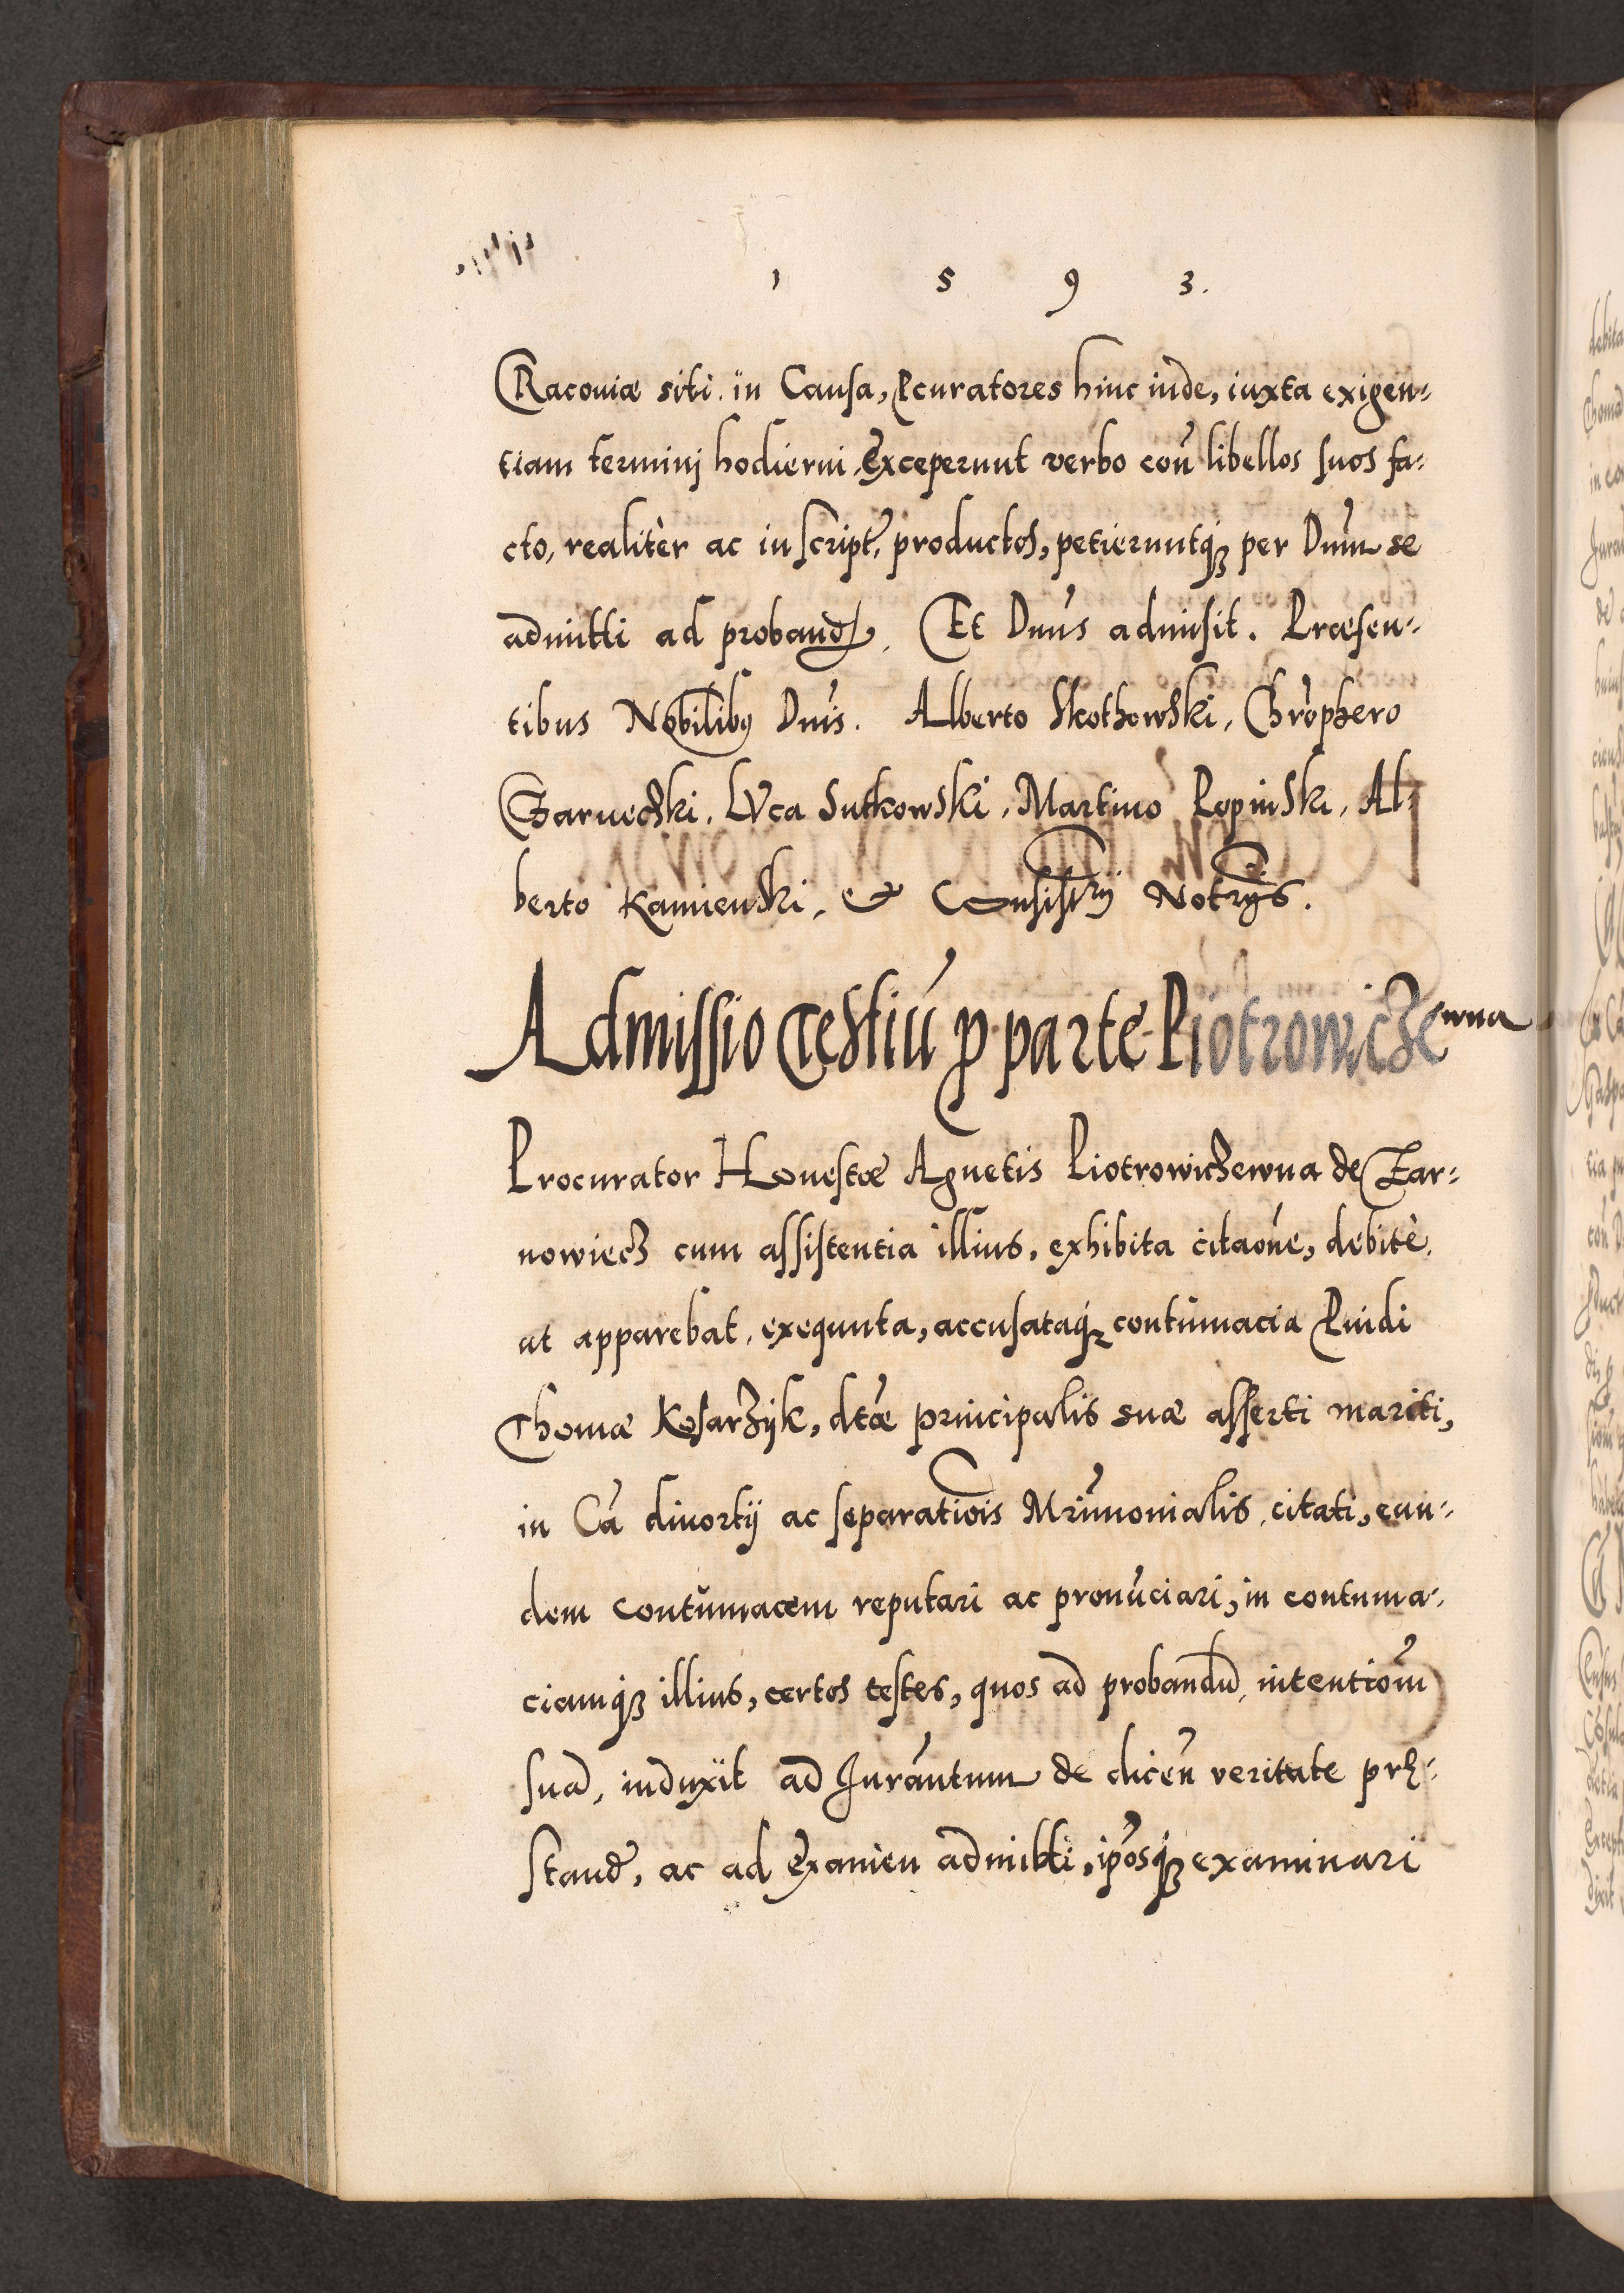 1 5 9 3.
Cracouiæ siti. in Causa, Pcuratores hinc inde, iuxta exigen-
tiam terminj hodierni, Exceperunt verbo coñ libellos suos fa-
cto, realitèr ac in script, productos, petieruntq3 per Dnum se
admitti ad proband. Et Dnus admisit. Præsen-
tibus Nobilibus Dnis. Alberto Skothowski, Chrophero
Czarneczki, Luca Sutkowski, Martino Lopinski, Al-
berto Kamienski, & Consistrij Notrijs.
Admissio Testiũ p parte Piotrowiczewna
Procurator Honestæ Agnetis Piotrowiczewna de Czar-
nowiecz cum assistentia illius, exhibita citaone, debitè,
ut apparebat, exequuta, accusataq3 contumacia Puidi
Thomæ Kosarzyk, dtæ principalis suæ asserti mariti,
in Ca diuortij ac separationis Mrimonialis, citati, eun-
dem contumacem reputari ac pronũciari, in contuma-
ciamq3 illius, certos testes, quos ad probandũ, intentiom
suã, induxit ad Juramtum de diceñ veritate prę-
stand, ac ad Examen admitti, iposq3 examinari